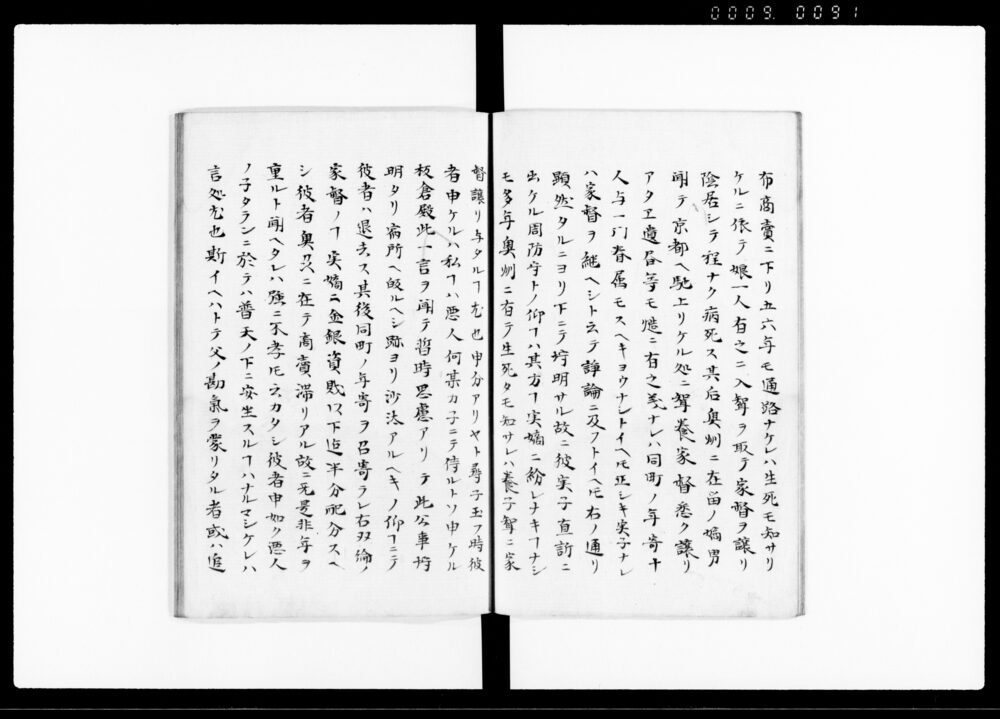 0009. 0091
布商賣ニ下リ五六年モ通路ナケレハ生死モ知サリ
ケルニ依テ娘一人有之ニ入聟ヲ取テ家督ヲ譲リ
陰居シテ程ナク病死ス其后奥州ニ在留ノ嫡男
聞テ京都ヘ馳上リケル処ニ聟養家督悉ク譲リ
アタヱ遺書等モ慥ニ有之義ナレハ同町ノ年寄十
人与一門眷属モスヘキヨウナシトイヘ𪜈正シキ実子ナレ
ハ家督ヲ継ヘシト云テ諍論ニ及フトイヘ𪜈右ノ通リ
顕然タルニヨリ下ニテ埒明サル故ニ彼実子直訴ニ
出ケル周防守トノ仰ヿハ其方ヿ実嫡ニ紛レナキヿナシ
モ多年奥州ニ有テ生死タモ知サレハ養子聟ニ家
督譲リ与タルヿ尤也申分アリヤト尋子玉フ時彼
者申ケルハ私ヿハ悪人何某カ子ニテ侍ルトソ申ケル
板倉殿此一言ヲ聞テ暫時思慮アリテ此公事埒
明タリ宿所ヘ皈ルヘシ跡ヨリ沙汰アルヘキノ仰ヿニテ
彼者ハ退去ス其後同町ノ年寄ヲ召寄ラレ右双論ノ
家督ノヿ実嫡ニ金銀資財以下迄半分配分スヘ
シ彼者奥州ニ在テ商賣滞リアル故ニ無是非年ヲ
重ルト聞ヘタレハ強ニ不孝𪜈云カタシ彼者申如ク悪人
ノ子タランニ於テハ普天ノ下ニ安生スルヿハナルマシケレハ
言処尤也斯イヘハトテ父ノ勘氣ヲ蒙リタル者或ハ追